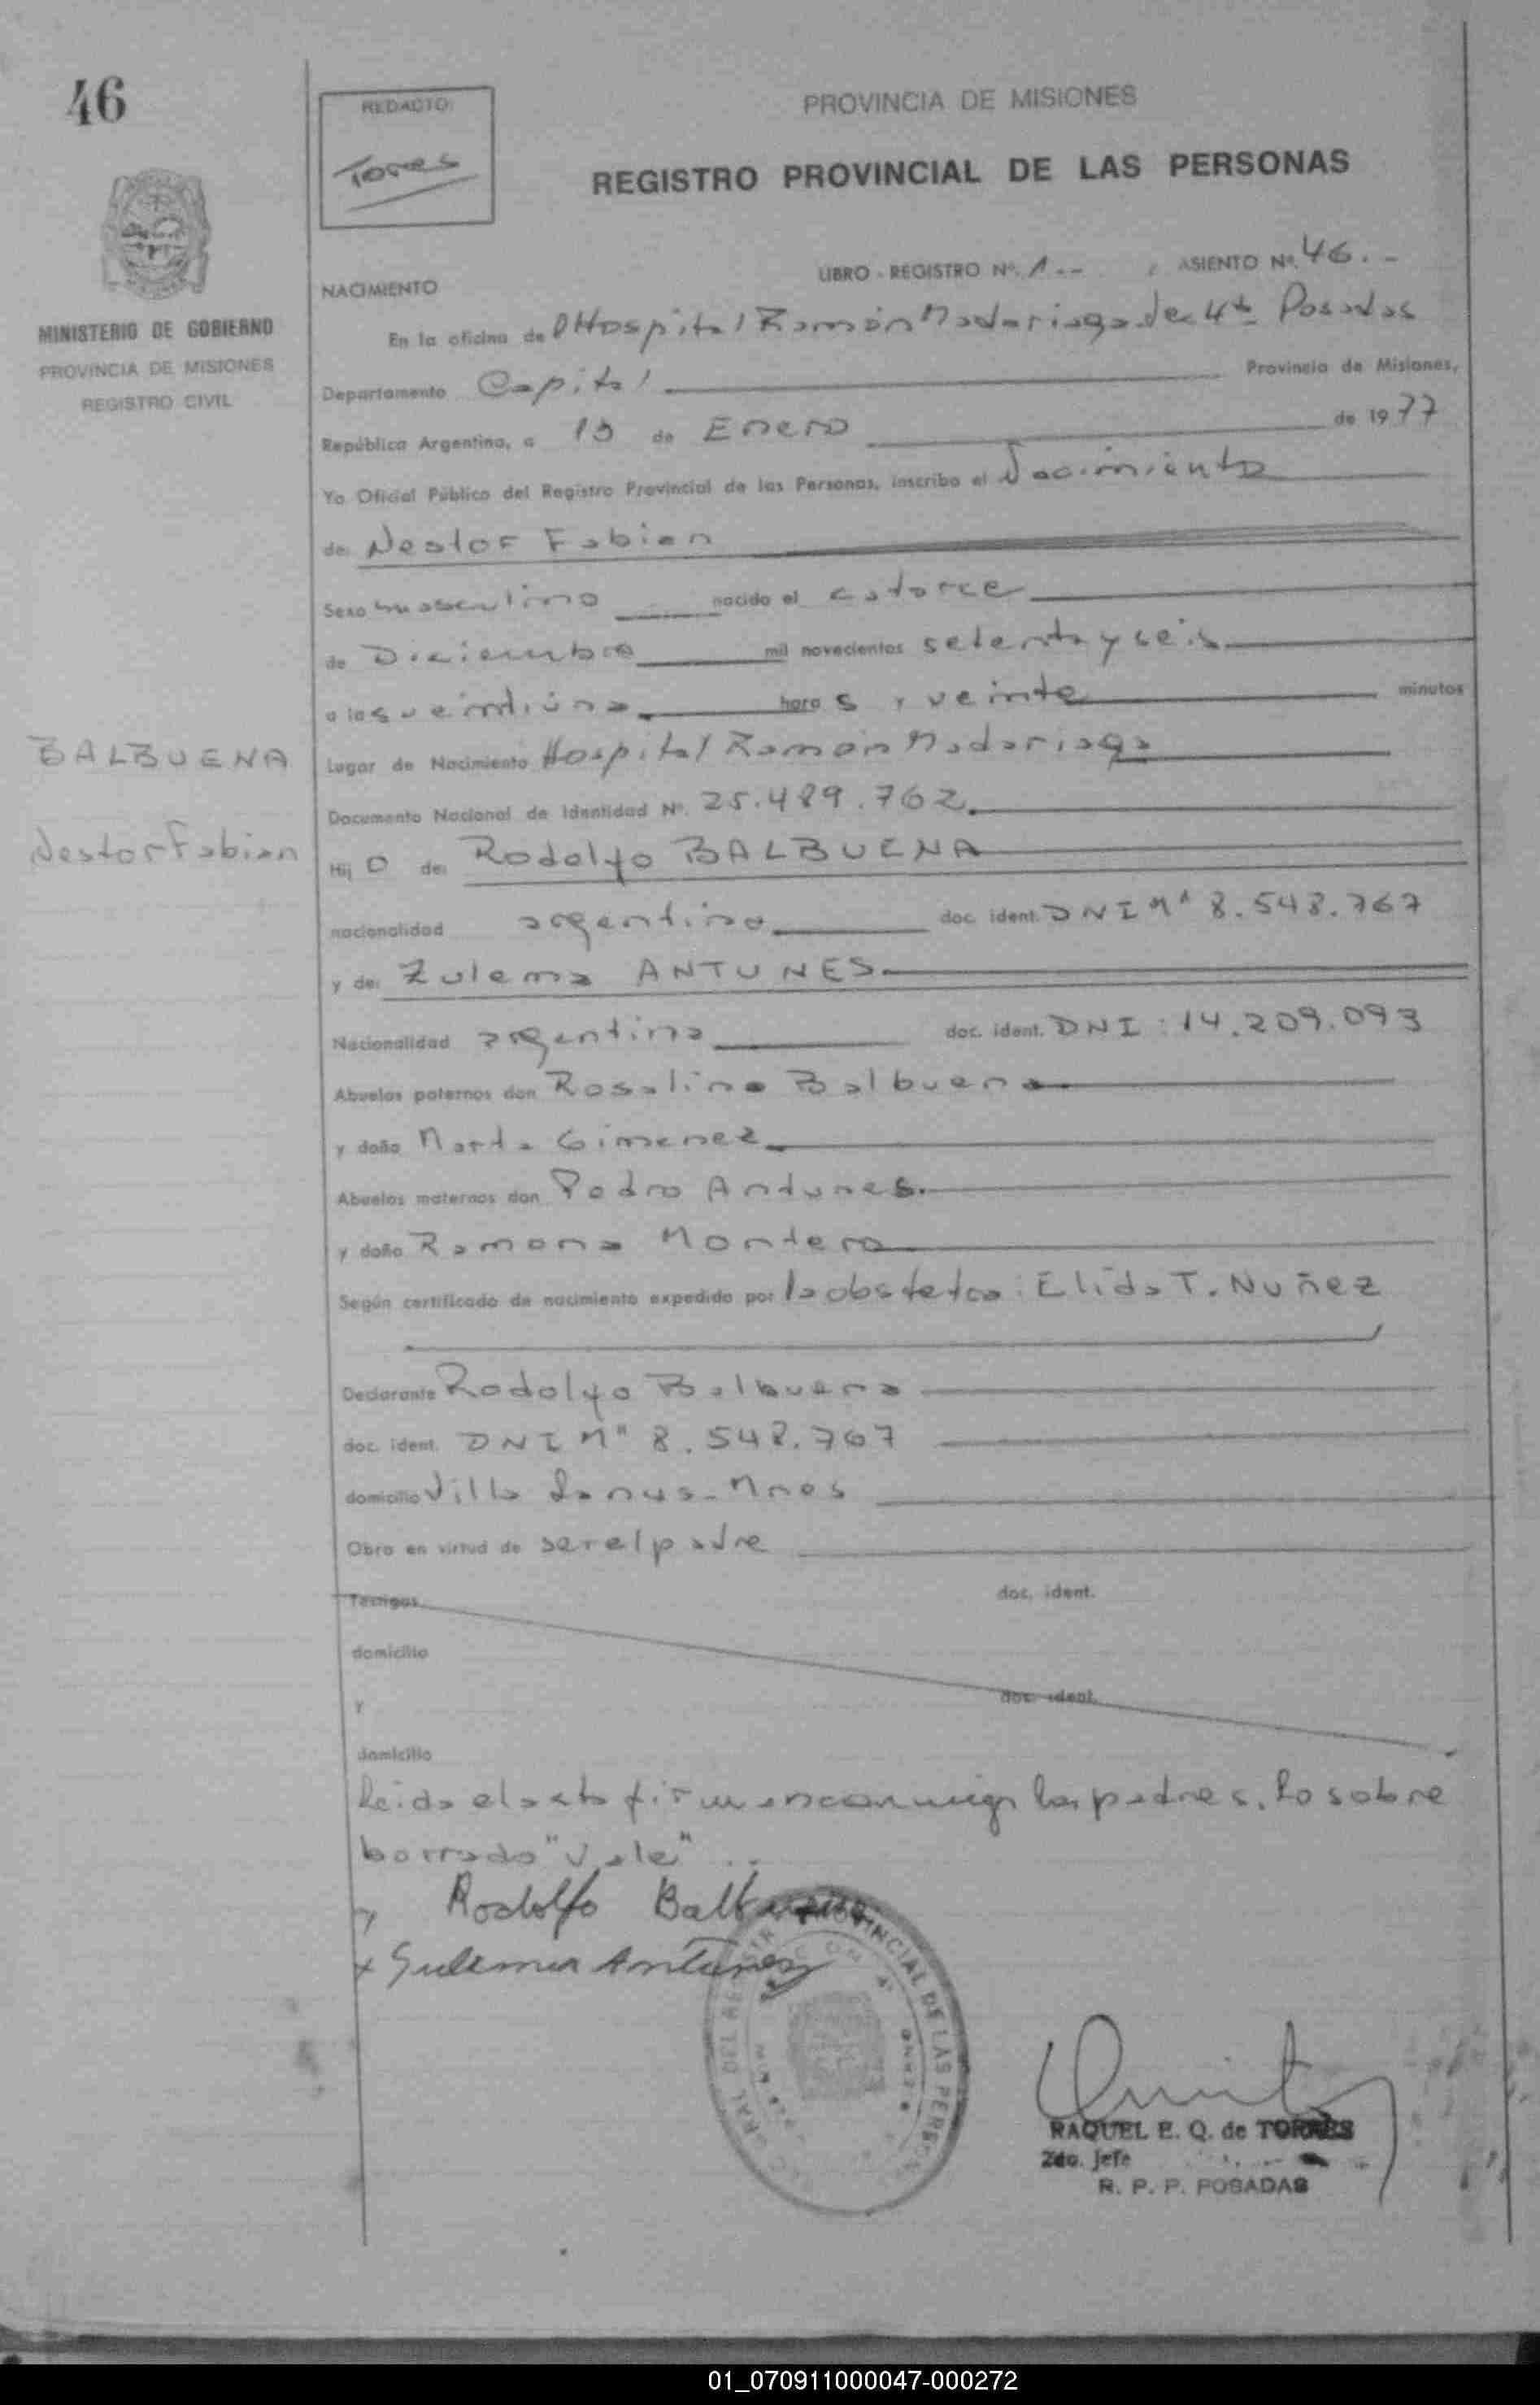 46
REDACTO:
Torres
PROVINCIA DE MISIONES
REGISTRO PROVINCIAL DE LAS PERSONAS
MINISTERIO DE GOBIERNO
PROVINCIA DE MISIONES
REGISTRO CIVIL
LIBRO - REGISTRO Nº. 1.-- , ASIENTO Nº. 46.-
NACIMIENTO
En la oficina de Hospital Ramón Madariaga Posadas
Departamento Capital Provincia de Misiones,
República Argentina, a de Enero de 1977
Yo Oficial Público del Registro Provincial de las Personas, inscribo el Nacimiento
de: Nestor Fabian
Sexo masculino nacido el catorce
de Diciembre mil novecientos setenta y seis
a las veintiúna hora s y veinte minutos
Lugar de Nacimiento Hospital Ramón Madariaga
Documento Nacional de Identidad Nº. 25.489.762
BALBUENA
Nestor Fabian
Hij o de: Rodolfo BALBUENA
nacionalidad argentina doc. ident. DNI Nº 8.548.767
y de: Zulema ANTUNES
Nacionalidad argentina doc. ident. DNI: 14.209.093
Abuelos paternos don Rosalino Balbuena
y doña Marta Gimenez
Abuelos maternos don Pedro Antunes.
y doña Ramona Montero
Según certificado de nacimiento expedido por la obstetra: Elida T. Nuñez
Declarante Rodolfo Balbuena
doc. ident. DNI Nº 8.548.767
domicilio Villa Lanus - Mnes
Obra en virtud de ser el padre
Testigos doc. ident.
domicilio
y doc. ident.
domicilio
Leida el acta firman conmigo los padres. Lo sobre
borrado "Vale" ..
Rodolfo Balbuena
x Sulema Antunes
PROVINCIAL DE LAS PERSONAS
RAQUEL E. Q. de TORRES
2do. Jefe
R. P. P. POSADAS
01_070911000047-000272